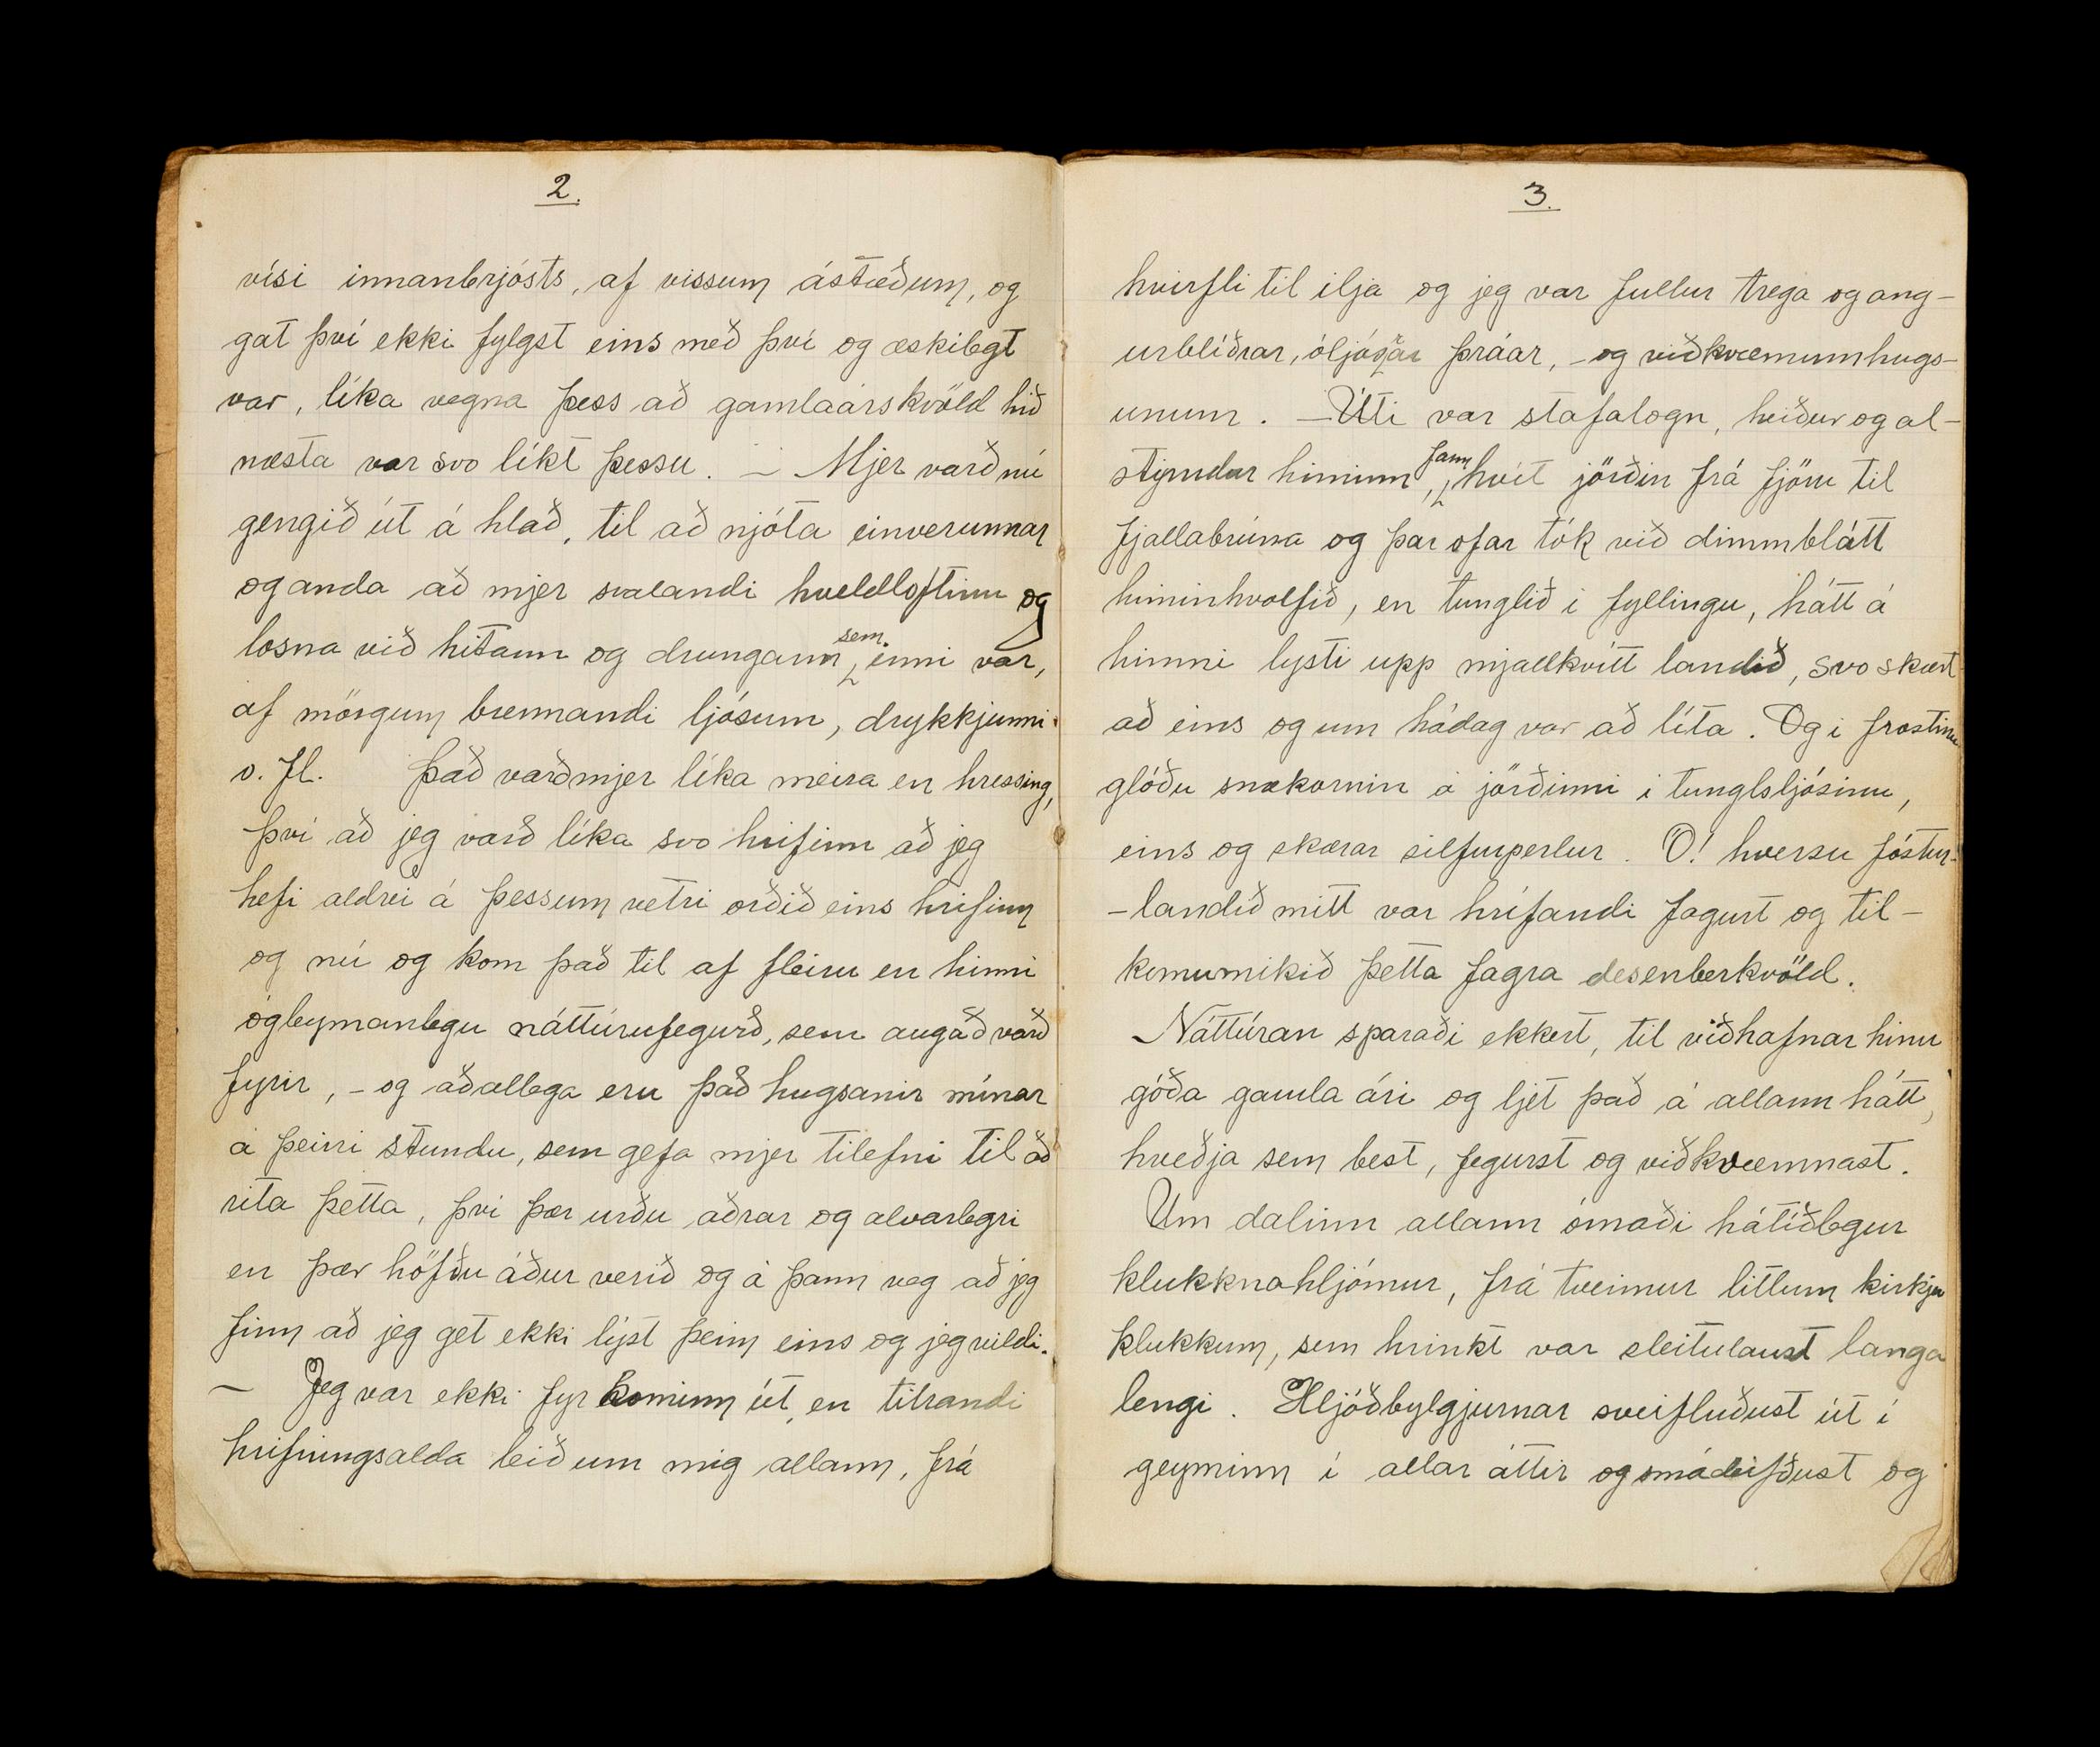 2.
vísi innanbrjósts, af vissum ástæðum, og
gat því ekki fylgst eins með því og æskilegt
var, líka vegna þess að gamlaárskvöld hið
næsta var svo líkt þessu. – Mjer varð nú
gengið út á hlað, til að njóta einverunnar
og anda að mjer svalandi hveldloftinu og
losna við hitann og drungann sem inni var,
af mörgum brennandi ljósum, drykkjunni
o. fl. Það varð mjer líka meira en hressing,
því að jeg varð líka svo hrifinn að jeg
hefi aldrei á þessum vetri orðið eins hrifinn
og nú og kom það til af fleiru en hinni
ógleymanlegu náttúrufegurð, sem augað varð
fyrir, – og aðallega eru það hugsanir mínar
á þeirri stundu, sem gefa mjer tilefni til að
rita þetta, því þær urðu aðrar og alvarlegri
en þær höfðu áður verið og á þann veg að jeg
finn að jeg get ekki lýst þeim eins og jeg vildi.
– Jeg var ekki fyr kominn út, en titrandi
hrifningsalda leið um mig allann, frá
3.
hvirfli til ilja og jeg var fullur trega og ang-
urblíðrar, óljósrar þráar, – og viðkvæmum hugs-
unum. – Úti var stafalogn, heiður og al-
styrndur himinn, fannhvít jörðin frá fjöru til
fjallabrúna og þar ofar tók við dimmblátt
himinhvolfið, en tunglið í fyllingu, hátt á
himni lysti upp mjallkvítt landið, svo skært
að eins og um hádag var að líta. Og í frostinu
glóðu snækornin á jörðinni í tunglsljósinu,
eins og skærar silfurperlur. Ó! hversu fóstur-
-landið mitt var hrífandi fagurt og til-
komumikið þetta fagra desenberkvöld.
Náttúran sparaði ekkert, til viðhafnar hinu
góða gamla ári og ljet það á allann hátt,
hveðja sem best, fegurst og viðkvæmnast.
Um dalinn allann ómaði hátíðlegur
klukknahljómur, frá tveimur litlum kirkju
klukkum, sem hrinkt var sleitulaust langa
lengi. Hljóðbylgjurnar sveifluðust út í
geyminn í allar áttir og smádeifðust og